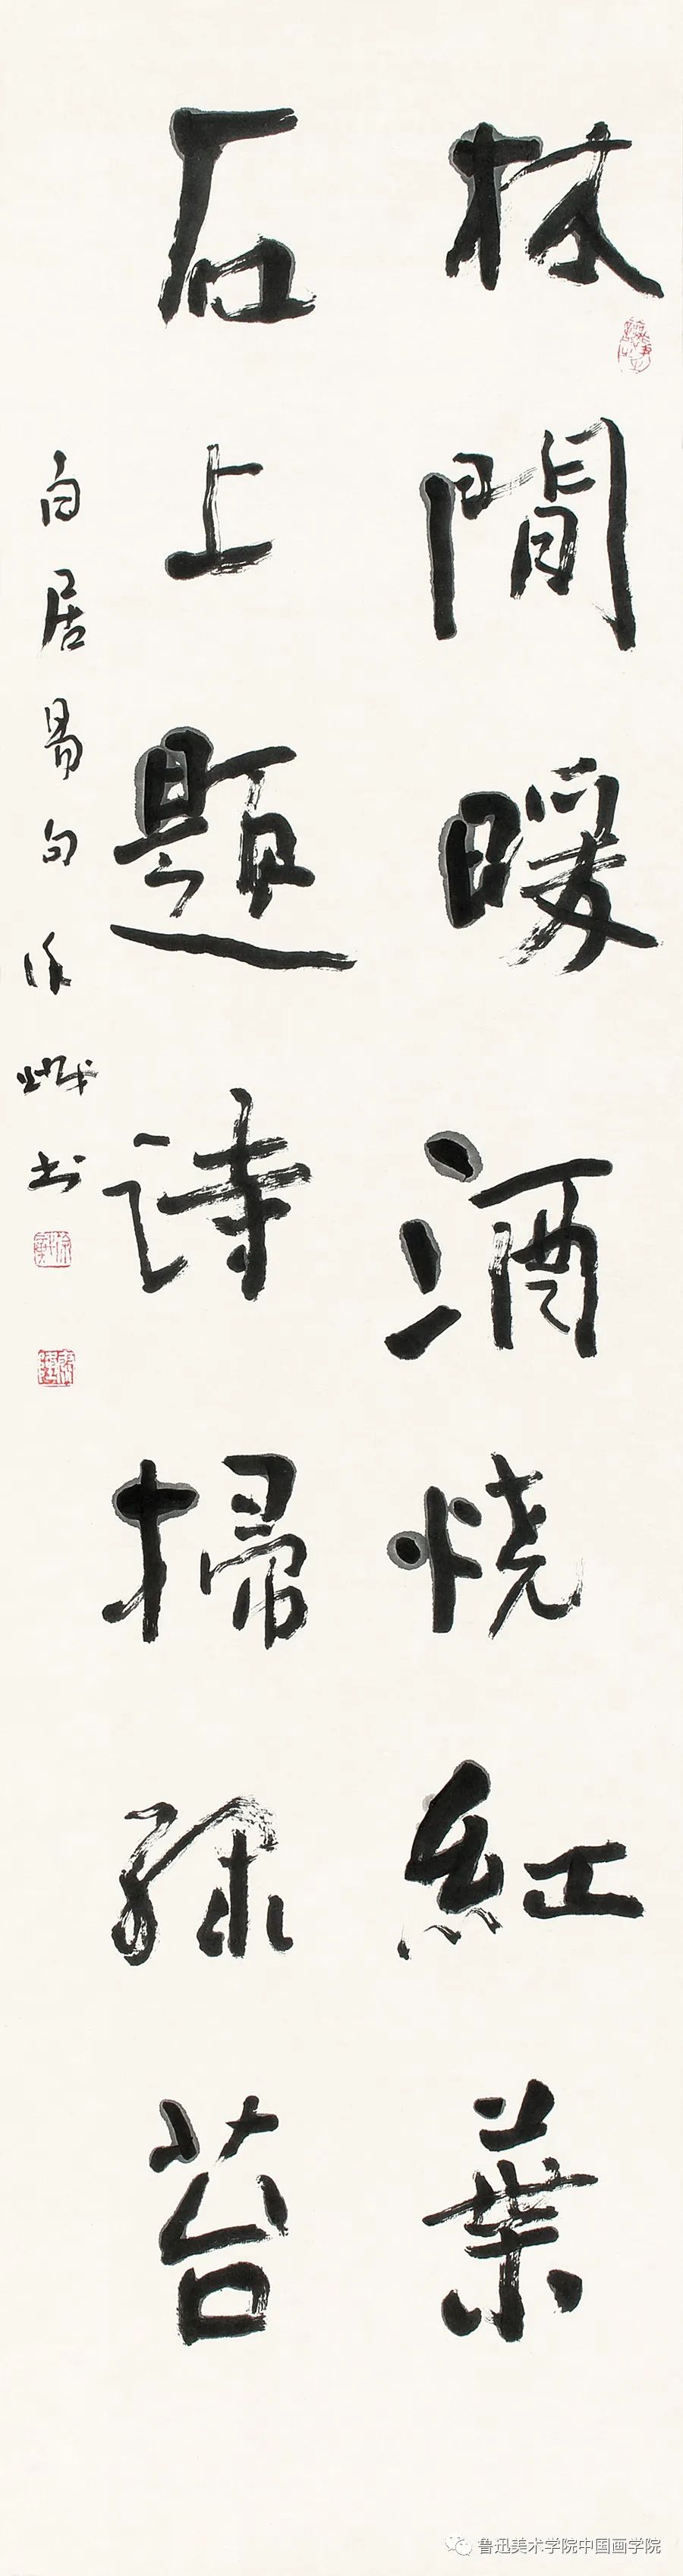 林間暖酒燒紅葉
石上題詩掃緑苔
白居易句徐 书
鲁迅美术学院中国画学院